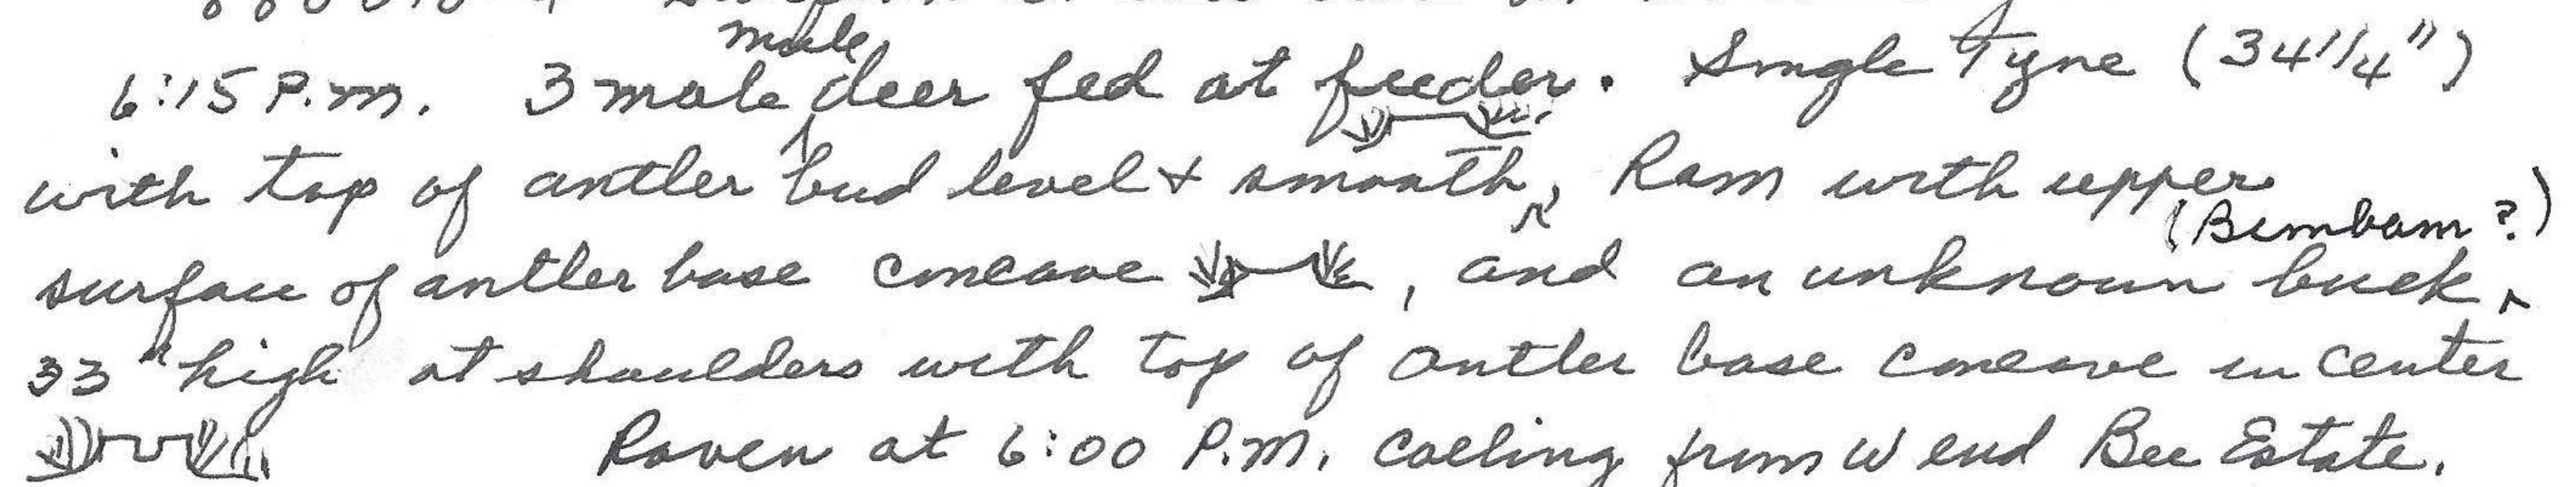 male
6:15 P.m. 3 mule deer fed at feeder. Single Tyne (34 1/4")
with top of antler bud level + smooth, Ram with upper
(Bimbam?)
surface of antler base concave , and an unknown buck
33" high at shoulders with top of antler base concave in center
Raven at 6:00 P.M. calling from W end Bee Estate.